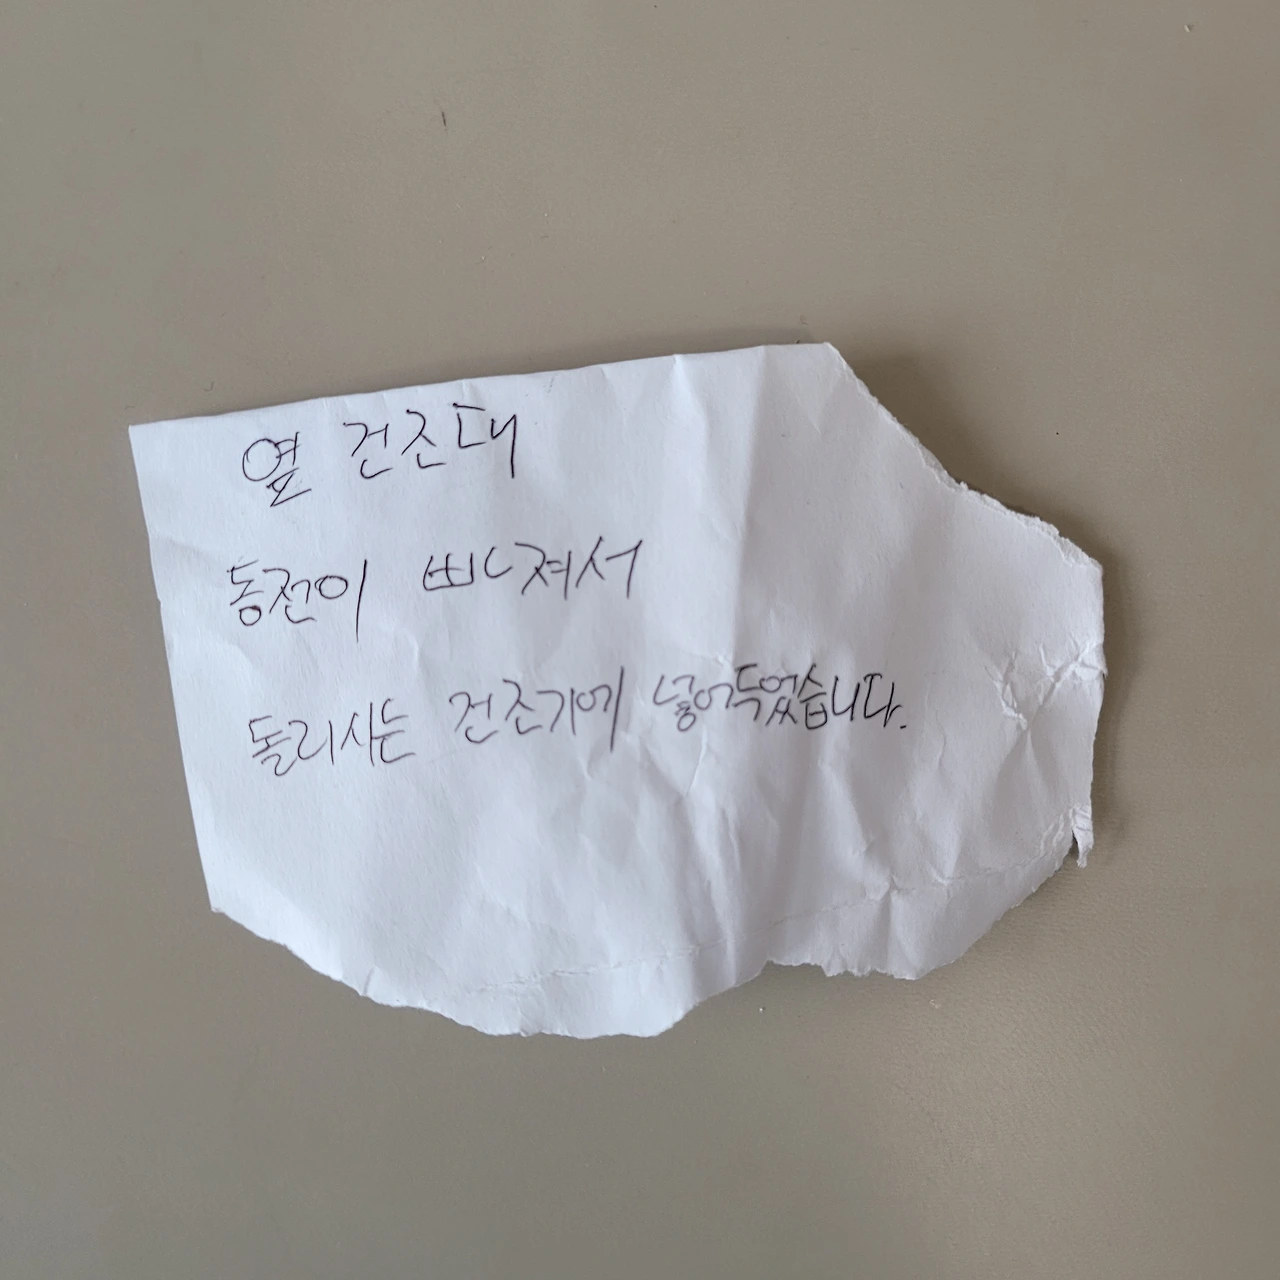 옆 건조대
동전이 빠져서
돌리시는 건조기에 넣어두었습니다.